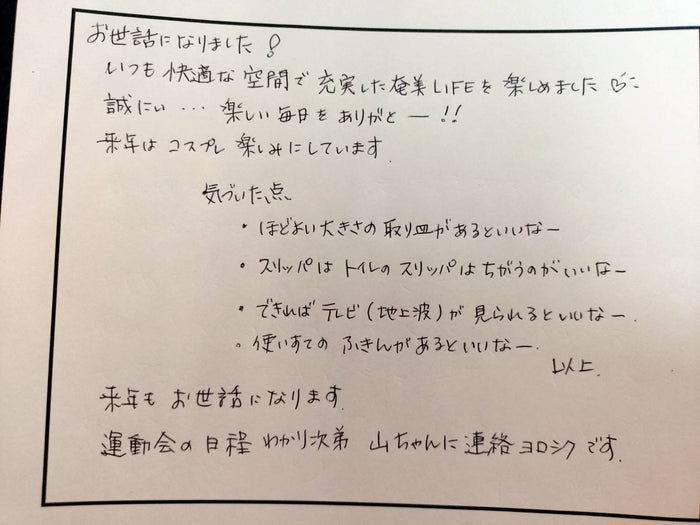 お世話になりました!
いつも快適な空間で充実した奄美LIFEを楽しめました♡
誠にい…楽しい毎日をありがとー!!
来年はコスプレ楽しみにしています.
気づいた点
・ほどよい大きさの取り皿があるといいなー
・スリッパはトイレのスリッパはちがうのがいいなー
・できればテレビ(地上波)が見られるといいなー.
・使いすてのふきんがあるといいなー.
以上.
来年もお世話になります.
運動会の日程わかり次第山ちゃんに連絡ヨロシクです.